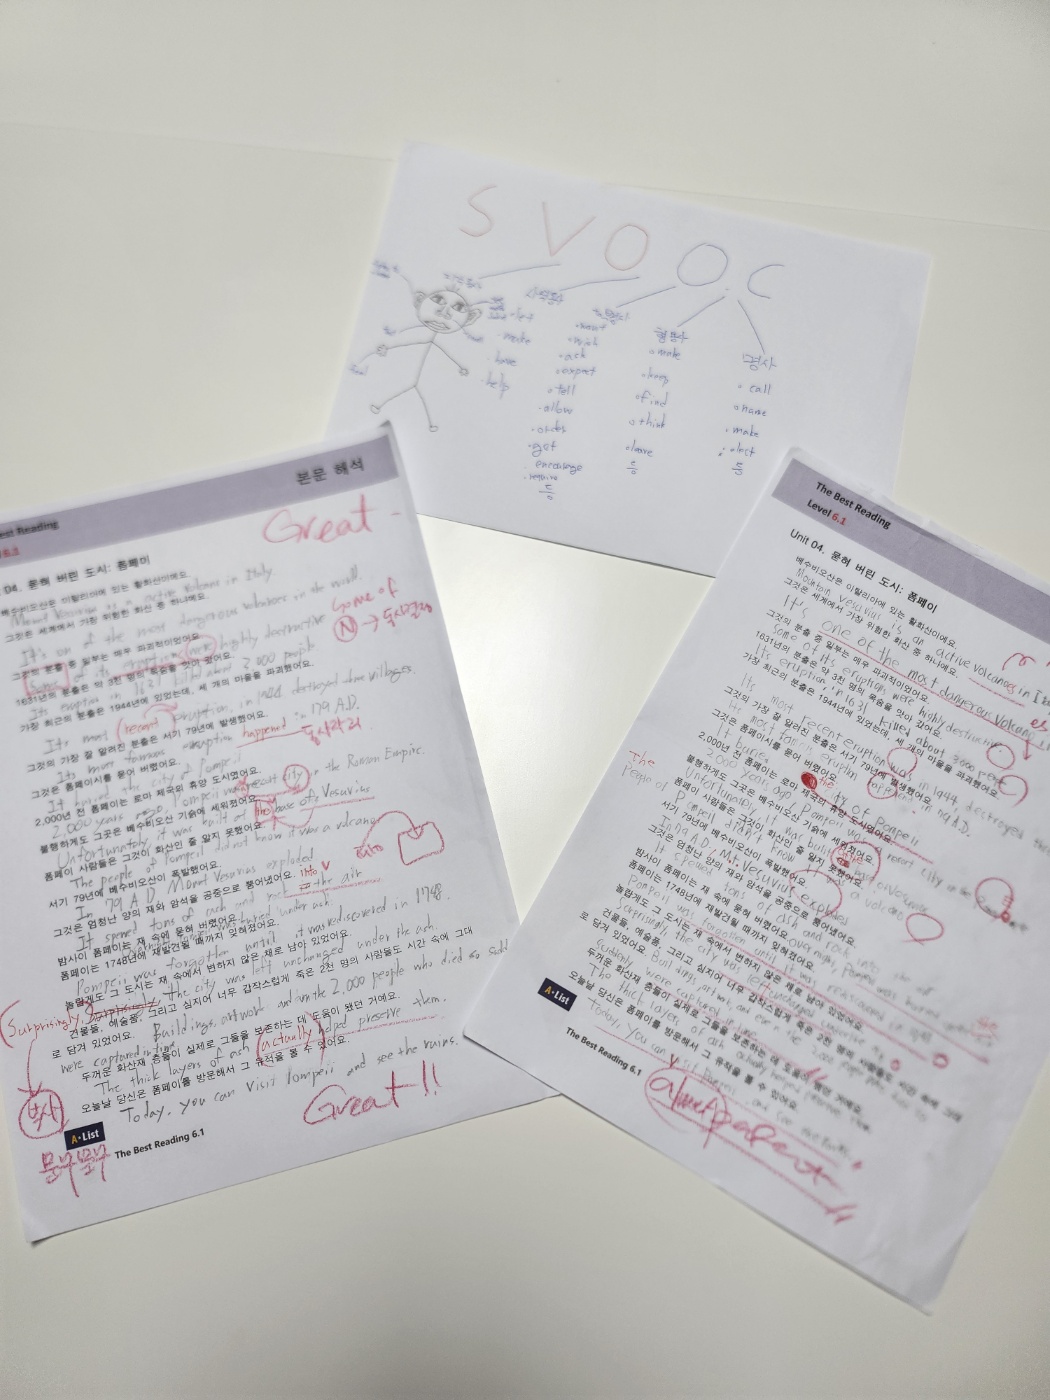 S V O O C
형용사
명사
let
make
have
help
want
wish
ask
expect
tell
allow
order
get
encourage
require
등
make
keep
find
think
leave
등
call
name
make
elect
등
본문 해석
Best Reading
6.1
Great
04. 묻혀 버린 도시: 폼페이
배수비오산은 이탈리아에 있는 활화산이에요.
Mount Vesuvius is a active volcano in Italy
그것은 세계에서 가장 위험한 화산 중 하나예요.
It's on of the most dangerous volcanoes in the world.
some of
N → 동사결정
그것의 분출 중 일부는 매우 파괴적이었어요.
Some of its eruptions were highly destructive
1631년의 분출은 약 3천 명의 목숨을 앗아 갔어요.
Its eruption in 1631 killed about 3,000 people
가장 최근의 분출은 1944년에 있었는데, 세 개의 마을을 파괴했어요.
Its most recent eruption, in 1944 destroyed three villages.
그것의 가장 잘 알려진 분출은 서기 79년에 발생했어요.
Its most famous eruption happened in 179 A.D.
동사자리
그것은 폼페이시를 묻어 버렸어요.
It buried the city of Pompeii
2,000년 전 폼페이는 로마 제국의 휴양 도시였어요.
2,000 years ago, Pompeii was a resort city in the Roman Empire.
불행하게도 그곳은 배수비오산 기슭에 세워졌어요.
Unfortunately, it was built at the base of Vesuvius
폼페이 사람들은 그것이 화산인 줄 알지 못했어요.
The people of Pompeii did not know it was a volcano
서기 79년에 배수비오산이 폭발했어요.
In 79 A.D. Mount Vesuvius exploded
그것은 엄청난 양의 재와 암석을 공중으로 뿜어냈어요.
It spewed tons of ash and rock into the air
into
밤사이 폼페이는 재 속에 묻혀 버렸어요.
폼페이는 1748년에 재발견될 때까지 잊혀졌어요.
Pompeii was forgotten until it was rediscovered in 1748.
놀랍게도 그 도시는 재 속에서 변하지 않은 채로 남아 있었어요.
Surprisingly, the city was left unchanged under the ash.
건물들, 예술품, 그리고 심지어 너무 갑작스럽게 죽은 2천 명의 사람들도 시간 속에 그대
Buildings, artwork and even the 2,000 people who died so
로 담겨 있었어요.
were captured in time
두꺼운 화산재 층들이 실제로 그들을 보존하는 데 도움이 됐던 거예요.
The thick layers of ash actually helped preserve them.
오늘날 당신은 폼페이를 방문해서 그 유적을 볼 수 있어요.
Today, you can visit Pompeii and see the ruins.
부사
Great!!
A·List
The Best Reading 6.1
The Best Reading
Level 6.1
Unit 04. 묻혀 버린 도시: 폼페이
배수비오산은 이탈리아에 있는 활화산이에요.
Mountain Vesuvius is an active volcanoes in
그것은 세계에서 가장 위험한 화산 중 하나예요.
It's one of the most dangerous volcano
그것의 분출 중 일부는 매우 파괴적이었어요.
Some of its eruption were highly destructive
1631년의 분출은 약 3천 명의 목숨을 앗아 갔어요.
Its eruption, in 1631 killed about 3000
가장 최근의 분출은 1944년에 있었는데, 세 개의 마을을 파괴했어요.
Its most recent eruption was in 1944, destroyed
그것의 가장 잘 알려진 분출은 서기 79년에 발생했어요.
그것은 폼페이시를 묻어 버렸어요.
It buried the city of Pompeii
2,000년 전 폼페이는 로마 제국의 휴양 도시였어요.
2000 years ago Pompeii was a resort city
불행하게도 그곳은 배수비오산 기슭에 세워졌어요.
Unfortunately,
폼페이 사람들은 그것이 화산인 줄 알지 못했어요.
The
of Pompeii didn't know
a volcano
서기 79년에 배수비오산이 폭발했어요.
In 79 A.D. Mt. Vesuvius
그것은 엄청난 양의 재와 암석을 공중으로 뿜어냈어요.
It spewed tons of ash and rock into the air
밤사이 폼페이는 재 속에 묻혀 버렸어요.
폼페이는 1748년에 재발견될 때까지 잊혀졌어요.
Pompeii was forgotten until it was
놀랍게도 그 도시는 재 속에서 변하지 않은 채로 남아 있었어요.
Surprisingly, the city was left unchanged
건물들, 예술품, 그리고 심지어 너무 갑작스럽게 죽은 2천 명의 사람들도 시간 속에 그대
로 담겨 있었어요.
두꺼운 화산재 층들이 실제로 그들을 보존하는 데 도움이 됐던 거예요.
The thick layers of ash actually helped
오늘날 당신은 폼페이를 방문해서 그 유적을 볼 수 있어요.
Today, you can
A·List
The Best Reading 6.1